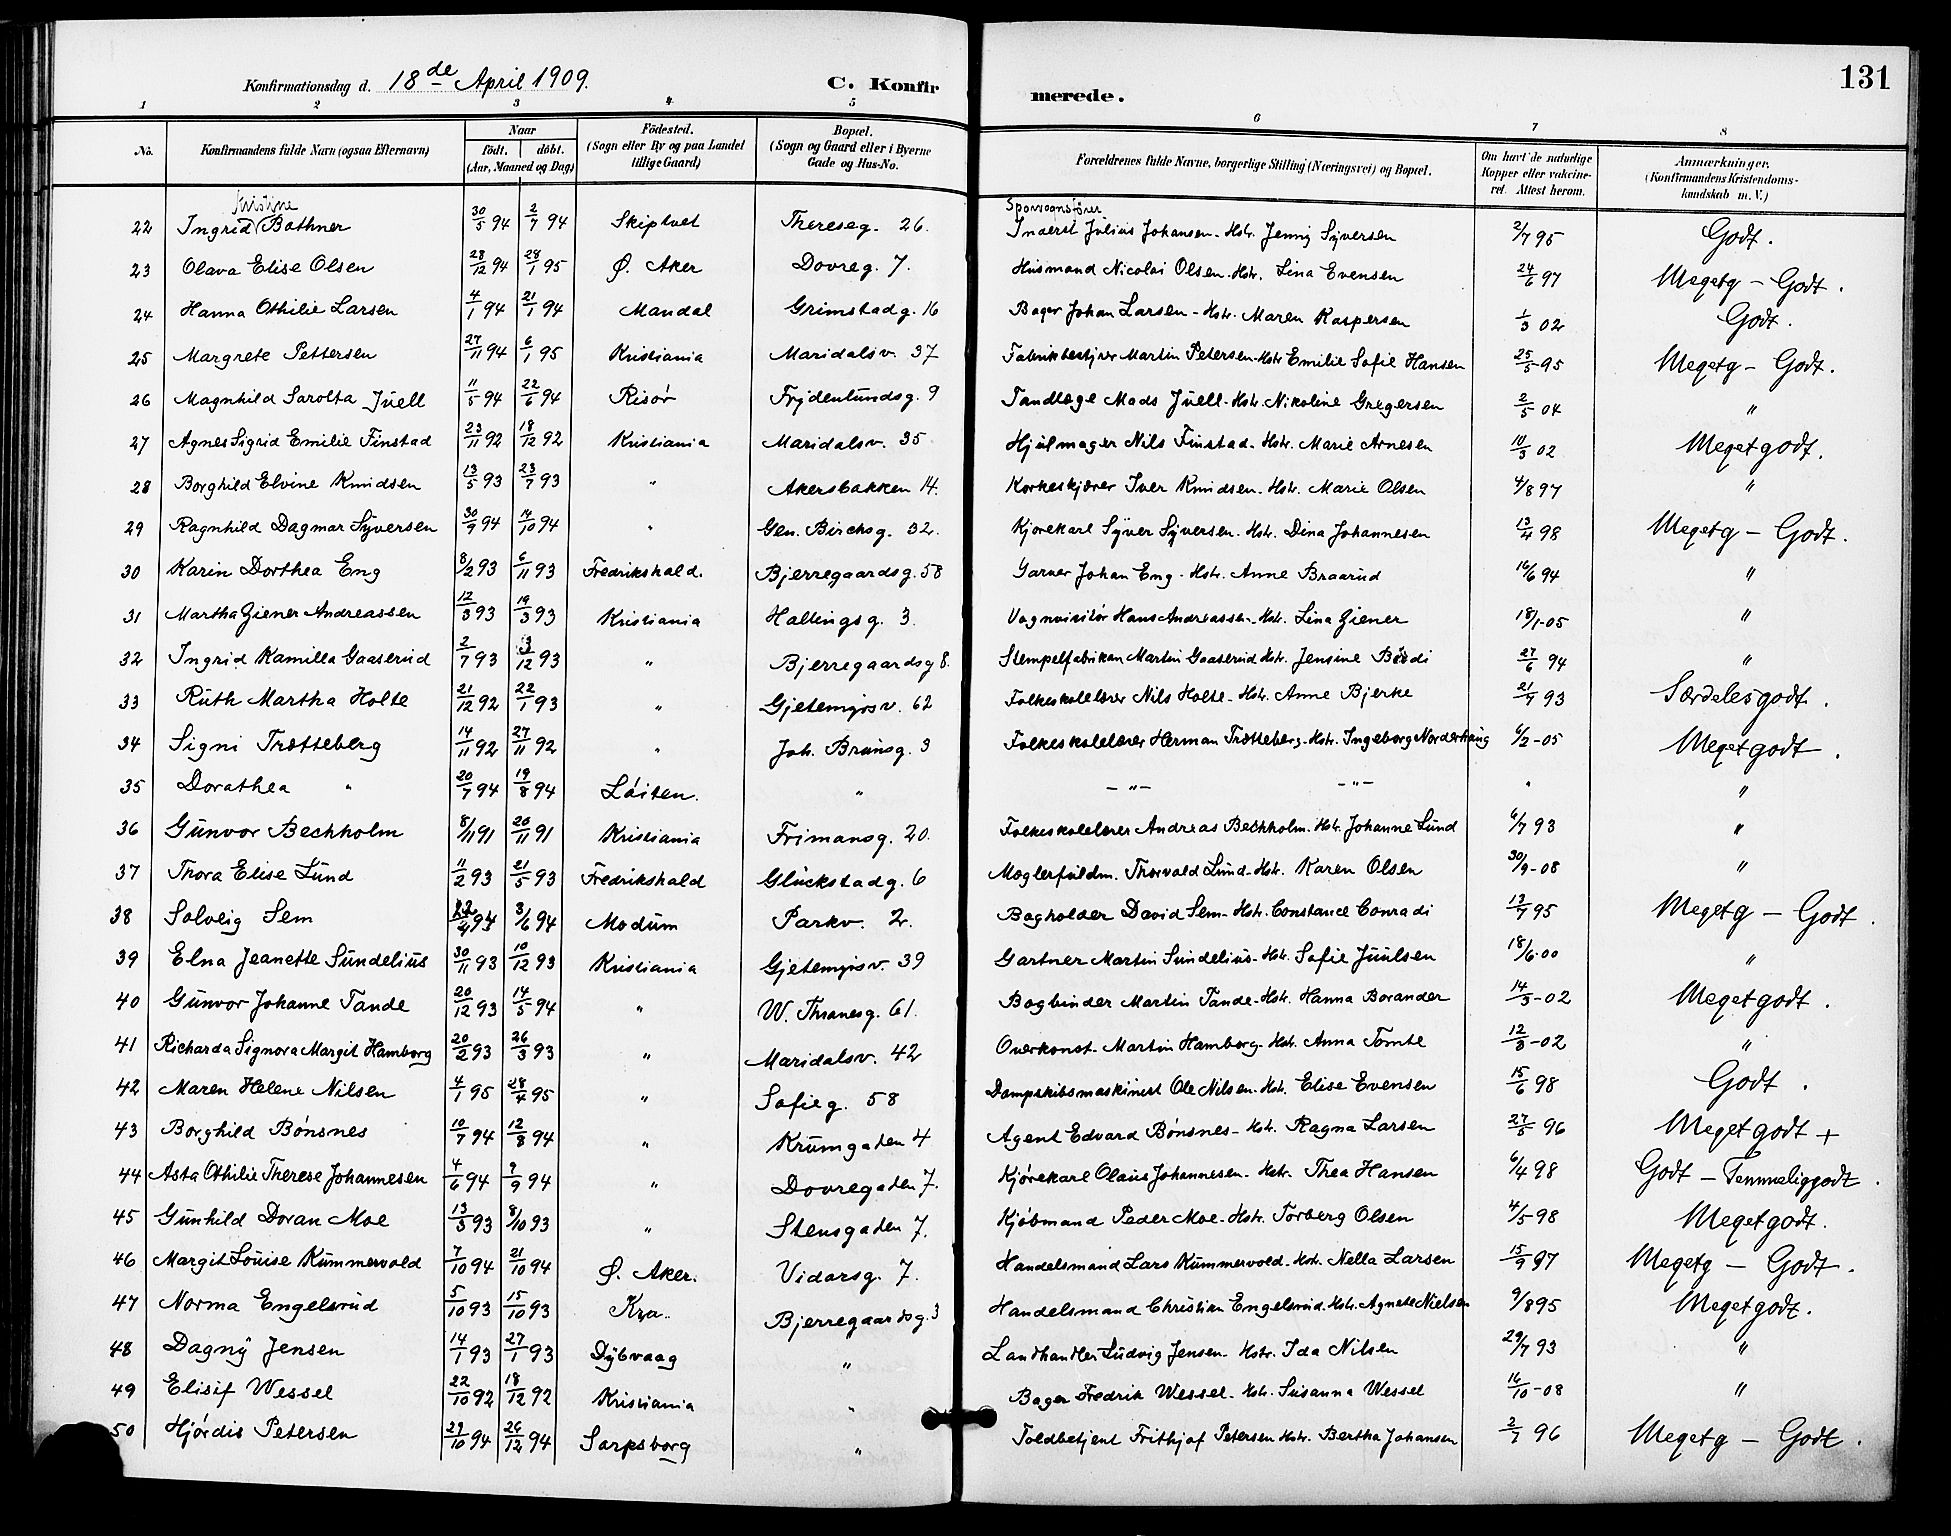 131
Konfirmationsdag d. 18de April 1909. C. Konfirmerede.
1 2 3 4 5 6 7 8
No. Konfirmandens fulde Navn (ogsaa Efternavn) Naar født. døbt. (Aar, Maaned og Dag) Fødested. (Sogn eller By og paa Landet tillige Gaard) Bopæl. (Sogn og Gaard eller i Byerne Gade og Hus-No. Forældrenes fulde Navne, borgerlige Stilling (Næringsvei) og Bopæl. Om havt de naturlige Kopper eller vakcineret. Attest herom. Anmærkninger. (Konfirmandens Kristendomskundskab m. V.)
Kristine Sporvognsfører
22 Ingrid Bothner 30/5 94 2/7 94 Skiptvet Thereseg. 26. Julius Johansen - Hstr. Jenny Syversen 2/7 95 Godt.
23 Olava Elise Olsen 28/12 94 28/1 95 Ø. Aker Dovreg. 7. Husmand Nicolai Olsen - Hstr. Lina Evensen 24/6 97 Megetg - Godt.
24 Hanna Othilie Larsen 4/1 94 21/1 94 Mandal Grimstadg. 16 Bager Johan Larsen - Hstr. Maren Kaspersen 1/3 02 Godt.
25 Margrete Pettersen 27/11 94 6/1 95 Kristiania Maridalsv. 37 Fabrikbestyrer Martin Petersen - Hstr Emilie Sofie Hansen 25/5-95 Megetg - Godt.
26 Magnhild Sarolta Juell 11/5 94 22/6 94 Risør Frydenlundsg. 9 Tandlæge Mads Juell - Hstr. Nikoline Gregersen 2/5 04 "
27 Agnes Sigrid Emilie Finstad 23/11 92 18/12 92 Kristiania Maridalsv. 35 Hjulmager Nils Finstad - Hstr. Marie Arnesen 10/3 02 Megetgodt.
28 Borghild Elvine Knudsen 13/5 93 23/7 93 " Akersbakken 14. Korkeskjærer Iver Knudsen - Hstr. Marie Olsen 4/8 97 "
29 Ragnhild Dagmar Syversen 30/9 94 14/10 94 " Gen. Birchsg. 32. Kjørekarl Syver Syversen - Hstr. Dina Johannesen 13/4 98 Megetg - Godt.
30 Karin Dorthea Eng 8/2 93 6/11 93 Fredrikshald. Bjerregaardsg. 58 Garver Johan Eng - Hstr. Anne Braarud 16/6 94 "
31 Martha Ziener Andreassen 12/3 93 19/3 93 Kristiania Hallingsg. 3. Vognvisitør Hans Andreassen - Hstr. Lina Ziener 18/1-05 "
32 Ingrid Kamilla Gaaserud 2/7 93 3/12 93 " Bjerregaardsg 8. Stempelfabrikan Martin Gaaserud Hstr. Jensine 27/6 94 "
33 Ruth Martha Holte 21/12 92 22/1 93 " Gjetemyrsv. 62 Folkeskolelærer Nils Holte - Hstr. Anne Bjerke 21/7 93 Særdelesgodt.
34 Signi Trætteberg 14/11 92 27/11 92 " Joh. Brunsg. 3 Folkeskolelærer Herman Trætteberg - Hstr. Ingeborg Norderhaug 6/2-05 Megetgodt.
35 Dorathea " 20/7 94 19/8 94 Løiten. " - " - - " - " "
36 Gunvor Bechholm 8/11 91 20/11 91 Kristiania Frimansg. 20. Folkeskolelærer Andreas Bechholm. Hstr. Johanne Lund 6/7 93 "
37 Thora Elise Lund 11/2 93 21/5 93 Fredrikshald Glückstadg. 6 Mæglerfuldm. Thorvald Lund - Hstr. Karen Olsen 30/9-08 "
38 Solveig Sem 94 3/6 94 Modum Parkv. 2. Bogholder David Sem - Hstr. Constance Conradi 13/7 95 Megetg - Godt.
39 Elna Jeanette Sundelius 30/11 93 10/12 93 Kristiania Gjetemyrsv. 39 Gartner Martin Sundelius - Hstr. Sofie Juulsen 18/6-00 "
40 Gunvor Johanne Tande 20/12 93 14/5 94 " W. Thranesg. 61. Bogbinder Martin Tande - Hstr. Hanna Borander 14/3-02 Megetgodt.
41 Richarda Signora Margit Hamborg 20/2 93 26/3 93 " Maridalsv. 42 Overkonst. Martin Hamborg - Hstr. Anna Tomte 12/3-02 "
42 Maren Helene Nilsen 4/1 95 28/4 95 " Sofieg. 58 Dampskibsmaskinist Ole Nilsen - Hstr. Elise Evensen 15/6 98 Godt.
43 Borghild Bønsnes 10/7 94 12/8 94 " Krumgaden 4 Agent Edvard Bønsnes - Hstr. Ragna Larsen 27/5 96 Megetgodt +
44 Asta Othilie Therese Johannesen 4/6 94 9/9 94 " Dovregaden 7. Kjørekarl Olaus Johannesen - Hstr. Thea Hansen 6/4 98 Godt - Temmeliggodt.
45 Gunhild Doran Moe 13/3 93 8/10 93 " Stensgaden 7. Kjøbmand Peder Moe - Hstr. Torberg Olsen 4/5-98 Megetgodt.
46 Margit Louise Kummervold 7/10 94 21/10 94 Ø. Aker. Vidarsg. 7. Handelsmand Lars Kummervold. Hstr. Nella Larsen 15/9 97 Megetg - Godt.
47 Norma Engelsrud 5/10 93 15/10 93 Kra. Bjerregaardsg. 3 Handelsmand Christian Engelsrud. Hstr. Agnete Nielsen 9/8 95 Megetgodt.
48 Dagny Jensen 14/1 93 27/1 93 Dybvaag " Landhandler Ludvig Jensen - Hstr. Ida Nilsen 29/7 93 "
49 Elisif Wessel 22/10 92 18/12 92 Kristiania " Bager Fredrik Wessel - Hstr. Susanna Wessel 16/10-08 "
50 Hjørdis Petersen 29/10 94 26/12 94 Sarpsborg " Toldbetjent Frithjof Petersen Hstr. Bertha Johansen 2/7 96 Megetg - Godt.